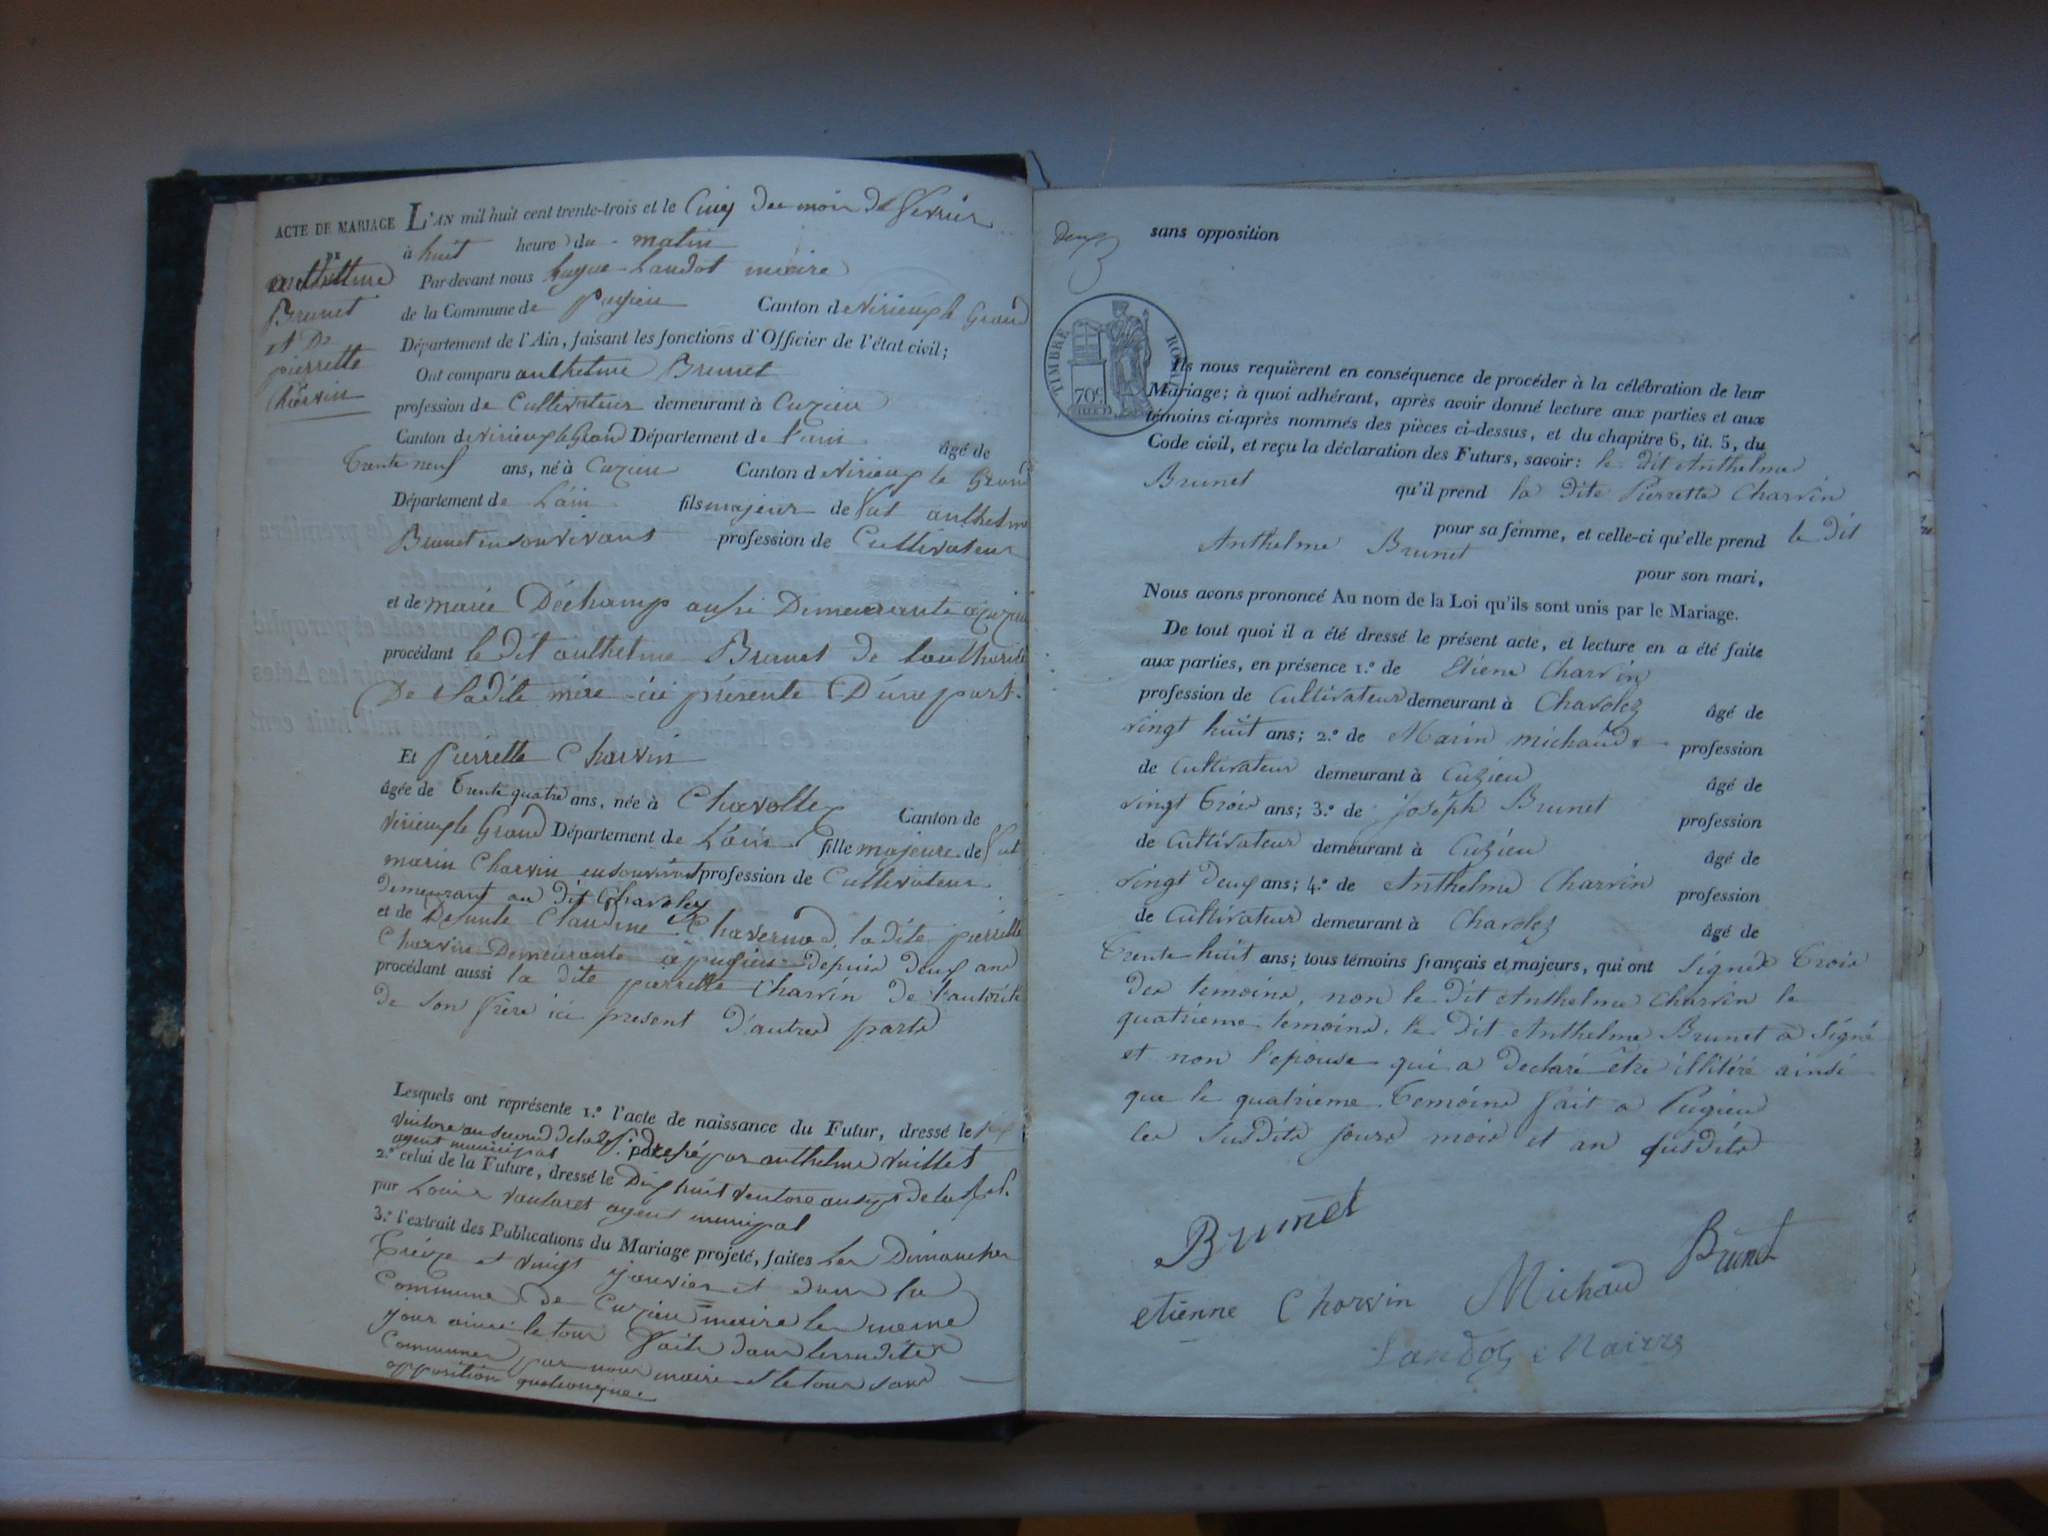 ACTE DE MARIAGE
DE
anthelme
Brunet
et De
pierrette
Charvin
L'AN mil huit cent trente-trois et le Cinq du mois de fevrier
à huit heure du matin
Par-devant nous hugue Landot maire
de la Commune de pugieu Canton de Virieux le Grand
Département de l'Ain, faisant les fonctions d'Officier de l'état civil;
Ont comparu anthelme Brunet
profession de Cultivateur demeurant à Cuzieu
Canton de Virieux le Grand Département de l'ain âgé de
Trente neuf ans, né à Cuzieu Canton d Virieux le Grand
Département de L'ain fils majeur de fut anthelme
Brunet en son vivant profession de Cultivateur
et de marie Dechamp aussi Demeurante a Cuzieu
procédant le dit anthelme Brunet de l'authorité
De Sa dite mère ici présente D'une part.
Et Pierrette Charvin
âgée de Trente quatre ans, née à Chavollez Canton de
Virieux le Grand Département de L'ain fille majeure de fut
marin Charvin en son vivant profession de Cultivateur
demeurant au dit Charolez
et de Defunte Claudine la dite pierrette
Charvin Demeurante a pugieu depuis deux ans
procédant aussi la dite pierrette Charvin de l'autorité
de son frère ici present d'autres parts
Lesquels ont représente 1.º l'acte de naissance du Futur, dressé le
Ventose an second de la par anthelme Vuillet
agent municipal
2.º celui de la Future, dressé le Dix huit Ventose an sept de la
par Louis Vautaret agent municipal
3.º l'extrait des Publications du Mariage projeté, faites les Dimanches
Treize et vingt janvier et dans la
Commune de Cuzieu maire le meme
jour ainsi le tour fait dans les susdites
Communes par nous maire et le tour sans
opposition quelconque.
deux
sans opposition
TIMBRE ROYAL
70c
Ils nous requièrent en conséquence de procéder à la célébration de leur
Mariage; à quoi adhérant, après avoir donné lecture aux parties et aux
témoins ci-après nommés des pièces ci-dessus, et du chapitre 6, tit. 5, du
Code civil, et reçu la déclaration des Futurs, savoir: le dit Anthelme
Brunet qu'il prend la dite Pierrette Charvin
pour sa femme, et celle-ci qu'elle prend le dit
Anthelme Brunet
pour son mari,
Nous avons prononcé Au nom de la Loi qu'ils sont unis par le Mariage.
De tout quoi il a été dressé le présent acte, et lecture en a été faite
aux parties, en présence 1.º de Etiene Charvin
profession de Cultivateur demeurant à Charolez âgé de
vingt huit ans; 2.º de Marin michaud profession
de Cultivateur demeurant à Cuzieu âgé de
vingt trois ans; 3.º de joseph Brunet profession
de Cultivateur demeurant à Cuzieu âgé de
vingt deux ans; 4.º de Anthelme Charvin profession
de Cultivateur demeurant à Charolez âgé de
Trente huit ans; tous témoins français et majeurs, qui ont signés trois
des temoins, non le dit Anthelme Charvin le
quatrieme temoins, le dit Anthelme Brunet a Signé
et non l'epouse qui a declaré être illitéré ainsi
que le quatrieme Temoins fait a Pugieu
les Susdits jours mois et an susdits
Brunet
Brunet
etienne Charvin Michaud
Landoz Maire